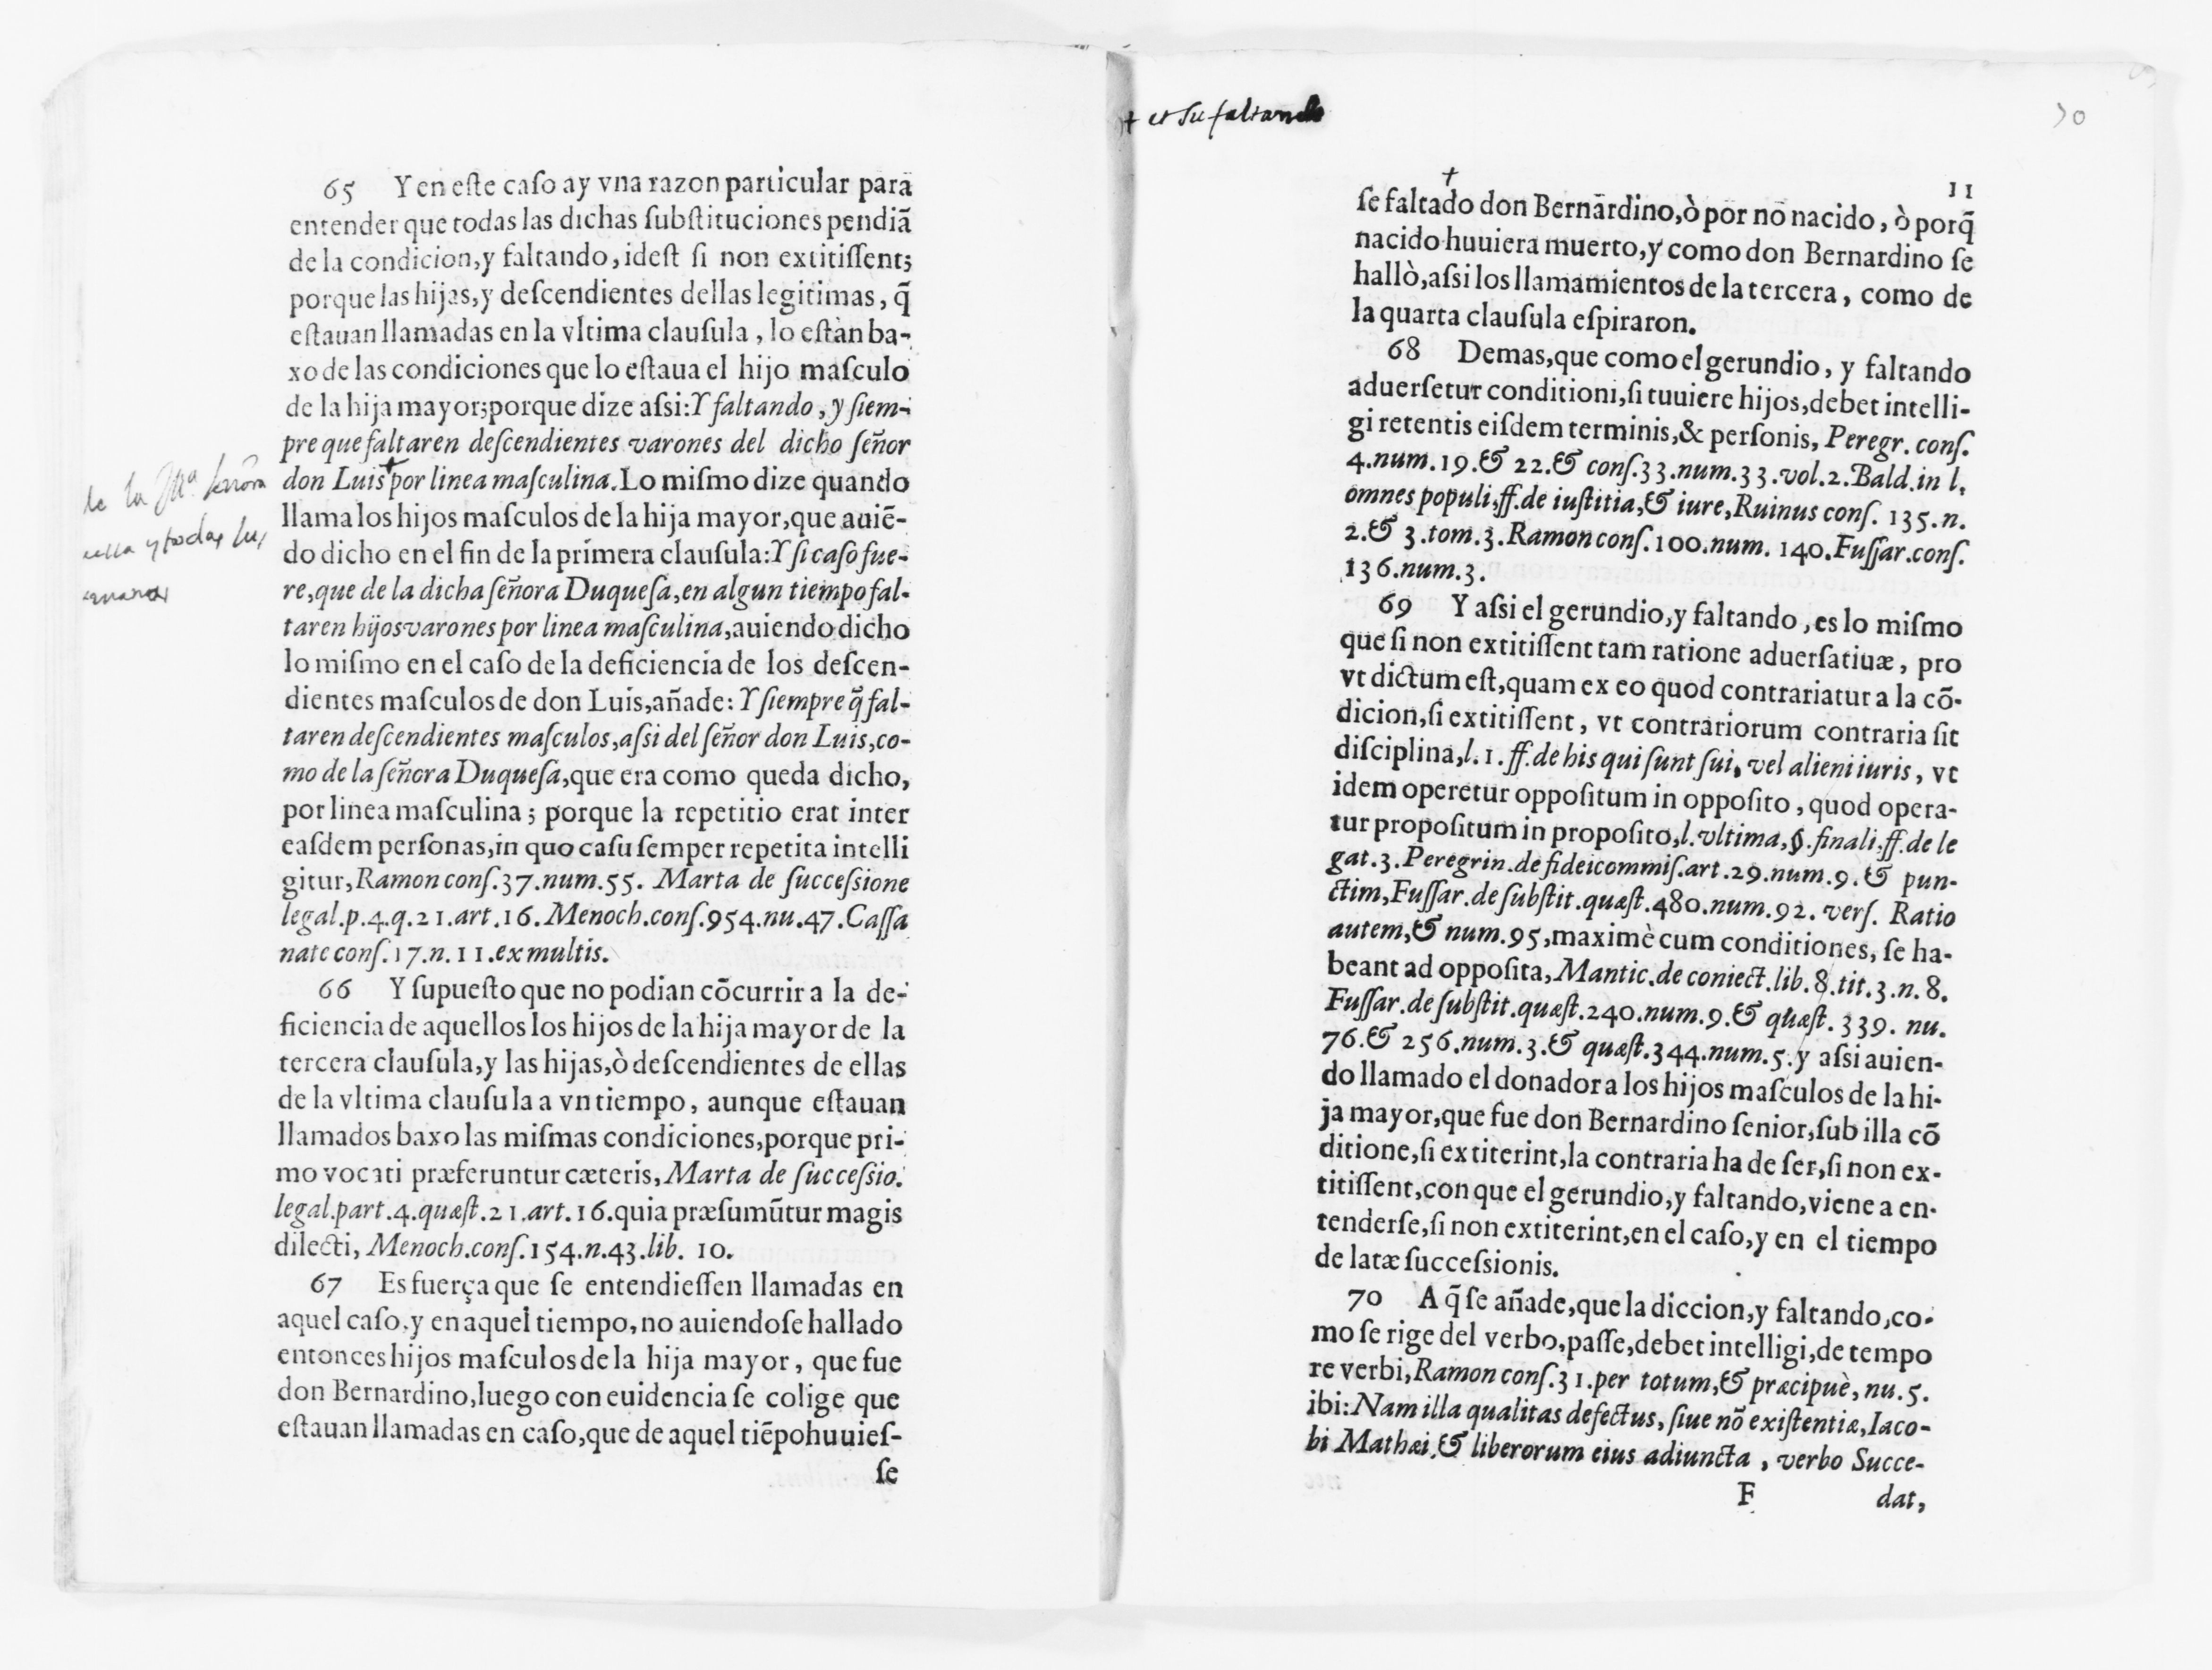 65 Y en eſte caſo ay vna razon particular para
entender que todas las dichas ſubſtituciones pendiã
de la condicion,y faltando, ideſt ſi non extitiſſent;
porque las hijas,y deſcendientes dellas legitimas, q̃
eſtauan llamadas en la vltima clauſula, lo eſtàn ba-
xo de las condiciones que lo eſtaua el hijo maſculo
de la hija mayor;porque dize aſsi:Y faltando, y ſiem-
pre que faltaren deſcendientes varones del dicho ſeñor
de la señora
don Luis + por linea maſculina.Lo miſmo dize quando
llama los hijos maſculos de la hija mayor,que auiẽ-
y todas sus
do dicho en el fin de la primera clauſula:Y ſi caſo fue-
re,que de la dicha ſeñora Duqueſa,en algun tiempo fal-
taren hijos varones por linea maſculina,auiendo dicho
lo miſmo en el caſo de la deficiencia de los deſcen-
dientes maſculos de don Luis,añade: Y ſiempre q̃ fal-
taren deſcendientes maſculos,aſsi del ſeñor don Luis,co-
mo de la ſeñora Duqueſa,que era como queda dicho,
por linea maſculina; porque la repetitio erat inter
eaſdem perſonas,in quo caſu ſemper repetita intelli
gitur,Ramon conſ.37.num.55. Marta de ſucceſsione
legal.p.4.q.21.art.16.Menoch.conſ.954.nu.47.Caſſa
nate conſ.17.n.11.ex multis.
66 Y ſupueſto que no podian cõcurrir a la de-
ficiencia de aquellos los hijos de la hija mayor de la
tercera clauſula,y las hijas,ò deſcendientes de ellas
de la vltima clauſula a vn tiempo, aunque eſtauan
llamados baxo las miſmas condiciones,porque pri-
mo vocati præferuntur cæteris, Marta de ſucceſsio.
legal.part.4.quæſt.21.art.16.quia præſumũtur magis
dilecti, Menoch.conſ.154.n.43.lib. 10.
67 Es fuerça que ſe entendieſſen llamadas en
aquel caſo,y en aquel tiempo,no auiendoſe hallado
entonces hijos maſculos de la hija mayor, que fue
don Bernardino,luego con euidencia ſe colige que
eſtauan llamadas en caſo,que de aquel tiẽpo huuieſ-
ſe
+ et su faltando
11
+
ſe faltado don Bernardino,ò por no nacido, ò porq̃
nacido huuiera muerto,y como don Bernardino ſe
hallò,aſsi los llamamientos de la tercera, como de
la quarta clauſula eſpiraron.
68 Demas,que como el gerundio, y faltando
aduerſetur conditioni,ſi tuuiere hijos,debet intelli-
gi retentis eiſdem terminis,& perſonis, Peregr. conſ.
4.num.19.& 22.& conſ.33.num.33.vol.2.Bald.in l.
omnes populi,ff.de iuſtitia,& iure,Ruinus conſ. 135.n.
2.& 3.tom.3.Ramon conſ.100.num. 140.Fuſſar.conſ.
136.num.3.
69 Y aſsi el gerundio,y faltando, es lo miſmo
que ſi non extitiſſent tam ratione aduerſatiuæ, pro
vt dictum eſt,quam ex eo quod contrariatur a la cõ-
dicion,ſi extitiſſent, vt contrariorum contraria ſit
diſciplina,l.1.ff.de his qui ſunt ſui, vel alieni iuris, vt
idem operetur oppoſitum in oppoſito, quod opera-
tur propoſitum in propoſito,l.vltima,§.finali,ff.de le
gat.3.Peregrin.de fideicommiſ.art.29.num.9.& pun-
ctim,Fuſſar.de ſubſtit.quæſt.480.num.92. verſ. Ratio
autem,& num.95,maximè cum conditiones, ſe ha-
beant ad oppoſita, Mantic.de coniect.lib.8.tit.3.n.8.
Fuſſar.de ſubſtit.quæſt.240.num.9.& quæſt.339. nu.
76.& 256.num.3.& quæſt.344.num.5.y aſsi auien-
do llamado el donador a los hijos maſculos de la hi-
ja mayor,que fue don Bernardino ſenior,ſub illa cõ
ditione,ſi extiterint,la contraria ha de ſer,ſi non ex-
titiſſent,con que el gerundio,y faltando,viene a en-
tenderſe,ſi non extiterint,en el caſo,y en el tiempo
de latæ ſucceſsionis.
70 A q̃ ſe añade,que la diccion,y faltando,co-
mo ſe rige del verbo,paſſe,debet intelligi,de tempo
re verbi,Ramon conſ.31.per totum,& præcipuè, nu.5.
ibi:Nam illa qualitas defectus, ſiue nõ exiſtentiæ,Iaco-
bi Mathæi,& liberorum eius adiuncta, verbo Succe-
F dat,